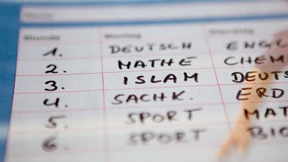 Stunde Montag Dienstag
1. DEUTSCH ENGL
2. MATHE CHEM
3. ISLAM DEUTS
4. SACHK. ERD
5. SPORT MAT
6. SPORT BIO